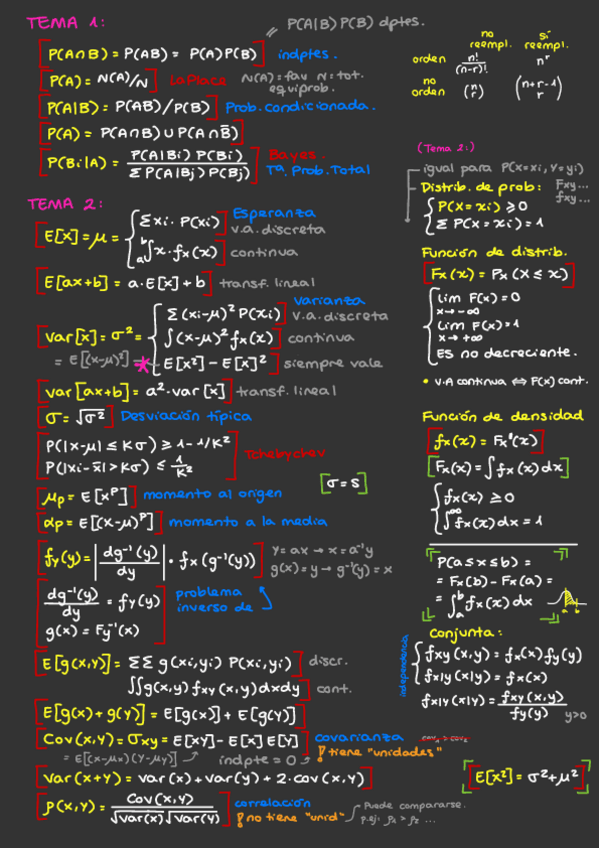 TEMA 1:
P(A|B) P(B) dptes.
P(A∩B) = P(AB) = P(A)P(B) indptes.
P(A) = N(A)/N LaPlace N(A)=fav N=tot.
equiprob.
P(A|B) = P(AB)/P(B) Prob. condicionada.
P(A) = P(A∩B) ∪ P(A∩B̄)
P(Bi|A) = P(A|Bi) P(Bi) / Σ P(A|Bj) P(Bj) Bayes.
Tª. Prob. Total
no reempl. sí reempl.
orden n!/(n-r)! n^r
no orden (n r) (n+r-1 r)
TEMA 2:
E[X] = μ = { Σ xi · P(xi) Esperanza
v.a. discreta
a∫b x · fx(x) continua
E[ax+b] = a·E[x]+b transf. lineal
var[x] = σ² = { Σ (xi-μ)² P(xi) varianza
v.a. discreta
∫(x-μ)² fx(x) continua
= E[(x-μ)²] * E[x²] - E[x]² siempre vale
var[ax+b] = a²·var[x] transf. lineal
σ = √σ² Desviación típica
P(|x-μ| ≤ Kσ) ≥ 1-1/K²
P(|xi-x̄| > Kσ) ≤ 1/K² Tchebychev
[σ=s]
μp = E[x^p] momento al origen
αp = E[(x-μ)^p] momento a la media
fy(y) = |dg⁻¹(y)/dy| · fx(g⁻¹(y)) y=ax → x=a⁻¹y
g(x)=y → g⁻¹(y)=x
dg⁻¹(y)/dy = fy(y) problema
inverso de
g(x) = Fy⁻¹(x)
E[g(x,y)] = ΣΣ g(xi,yi) P(xi,yi) discr.
∫∫g(x,y) fxy(x,y)dxdy cont.
E[g(x)+g(y)] = E[g(x)] + E[g(y)]
Cov(x,y) = σxy = E[xy] - E[x]E[y] covarianza
= E[(x-μx)(y-μy)] indpte = 0 ! tiene "unidades"
var(x+y) = var(x) + var(y) + 2·cov(x,y)
ρ(x,y) = Cov(x,y) / √var(x) √var(y) correlación
! no tiene "unid" Puede compararse.
p.ej: ρ1 > ρ2 ...
(Tema 2:)
igual para P(x=xi, y=yi)
Distrib. de prob: Fxy...
fxy...
P(x=xi) ≥ 0
Σ P(x=xi) = 1
Función de distrib.
Fx(x) = Px(X ≤ x)
lim F(x) = 0
x→-∞
lim F(x) = 1
x→+∞
ES no decreciente.
• v.A continua ⟺ F(x) cont.
Función de densidad
fx(x) = Fx'(x)
Fx(x) = ∫fx(x)dx
fx(x) ≥ 0
∫∞ fx(x)dx = 1
P(a≤x≤b) =
= Fx(b) - Fx(a) =
= ∫a b fx(x)dx a b
conjunta:
independencia
fxy(x,y) = fx(x)fy(y)
fx|y(x|y) = fx(x)
fx|y(x|y) = fxy(x,y)/fy(y) y>0
[E[x²] = σ²+μ²]